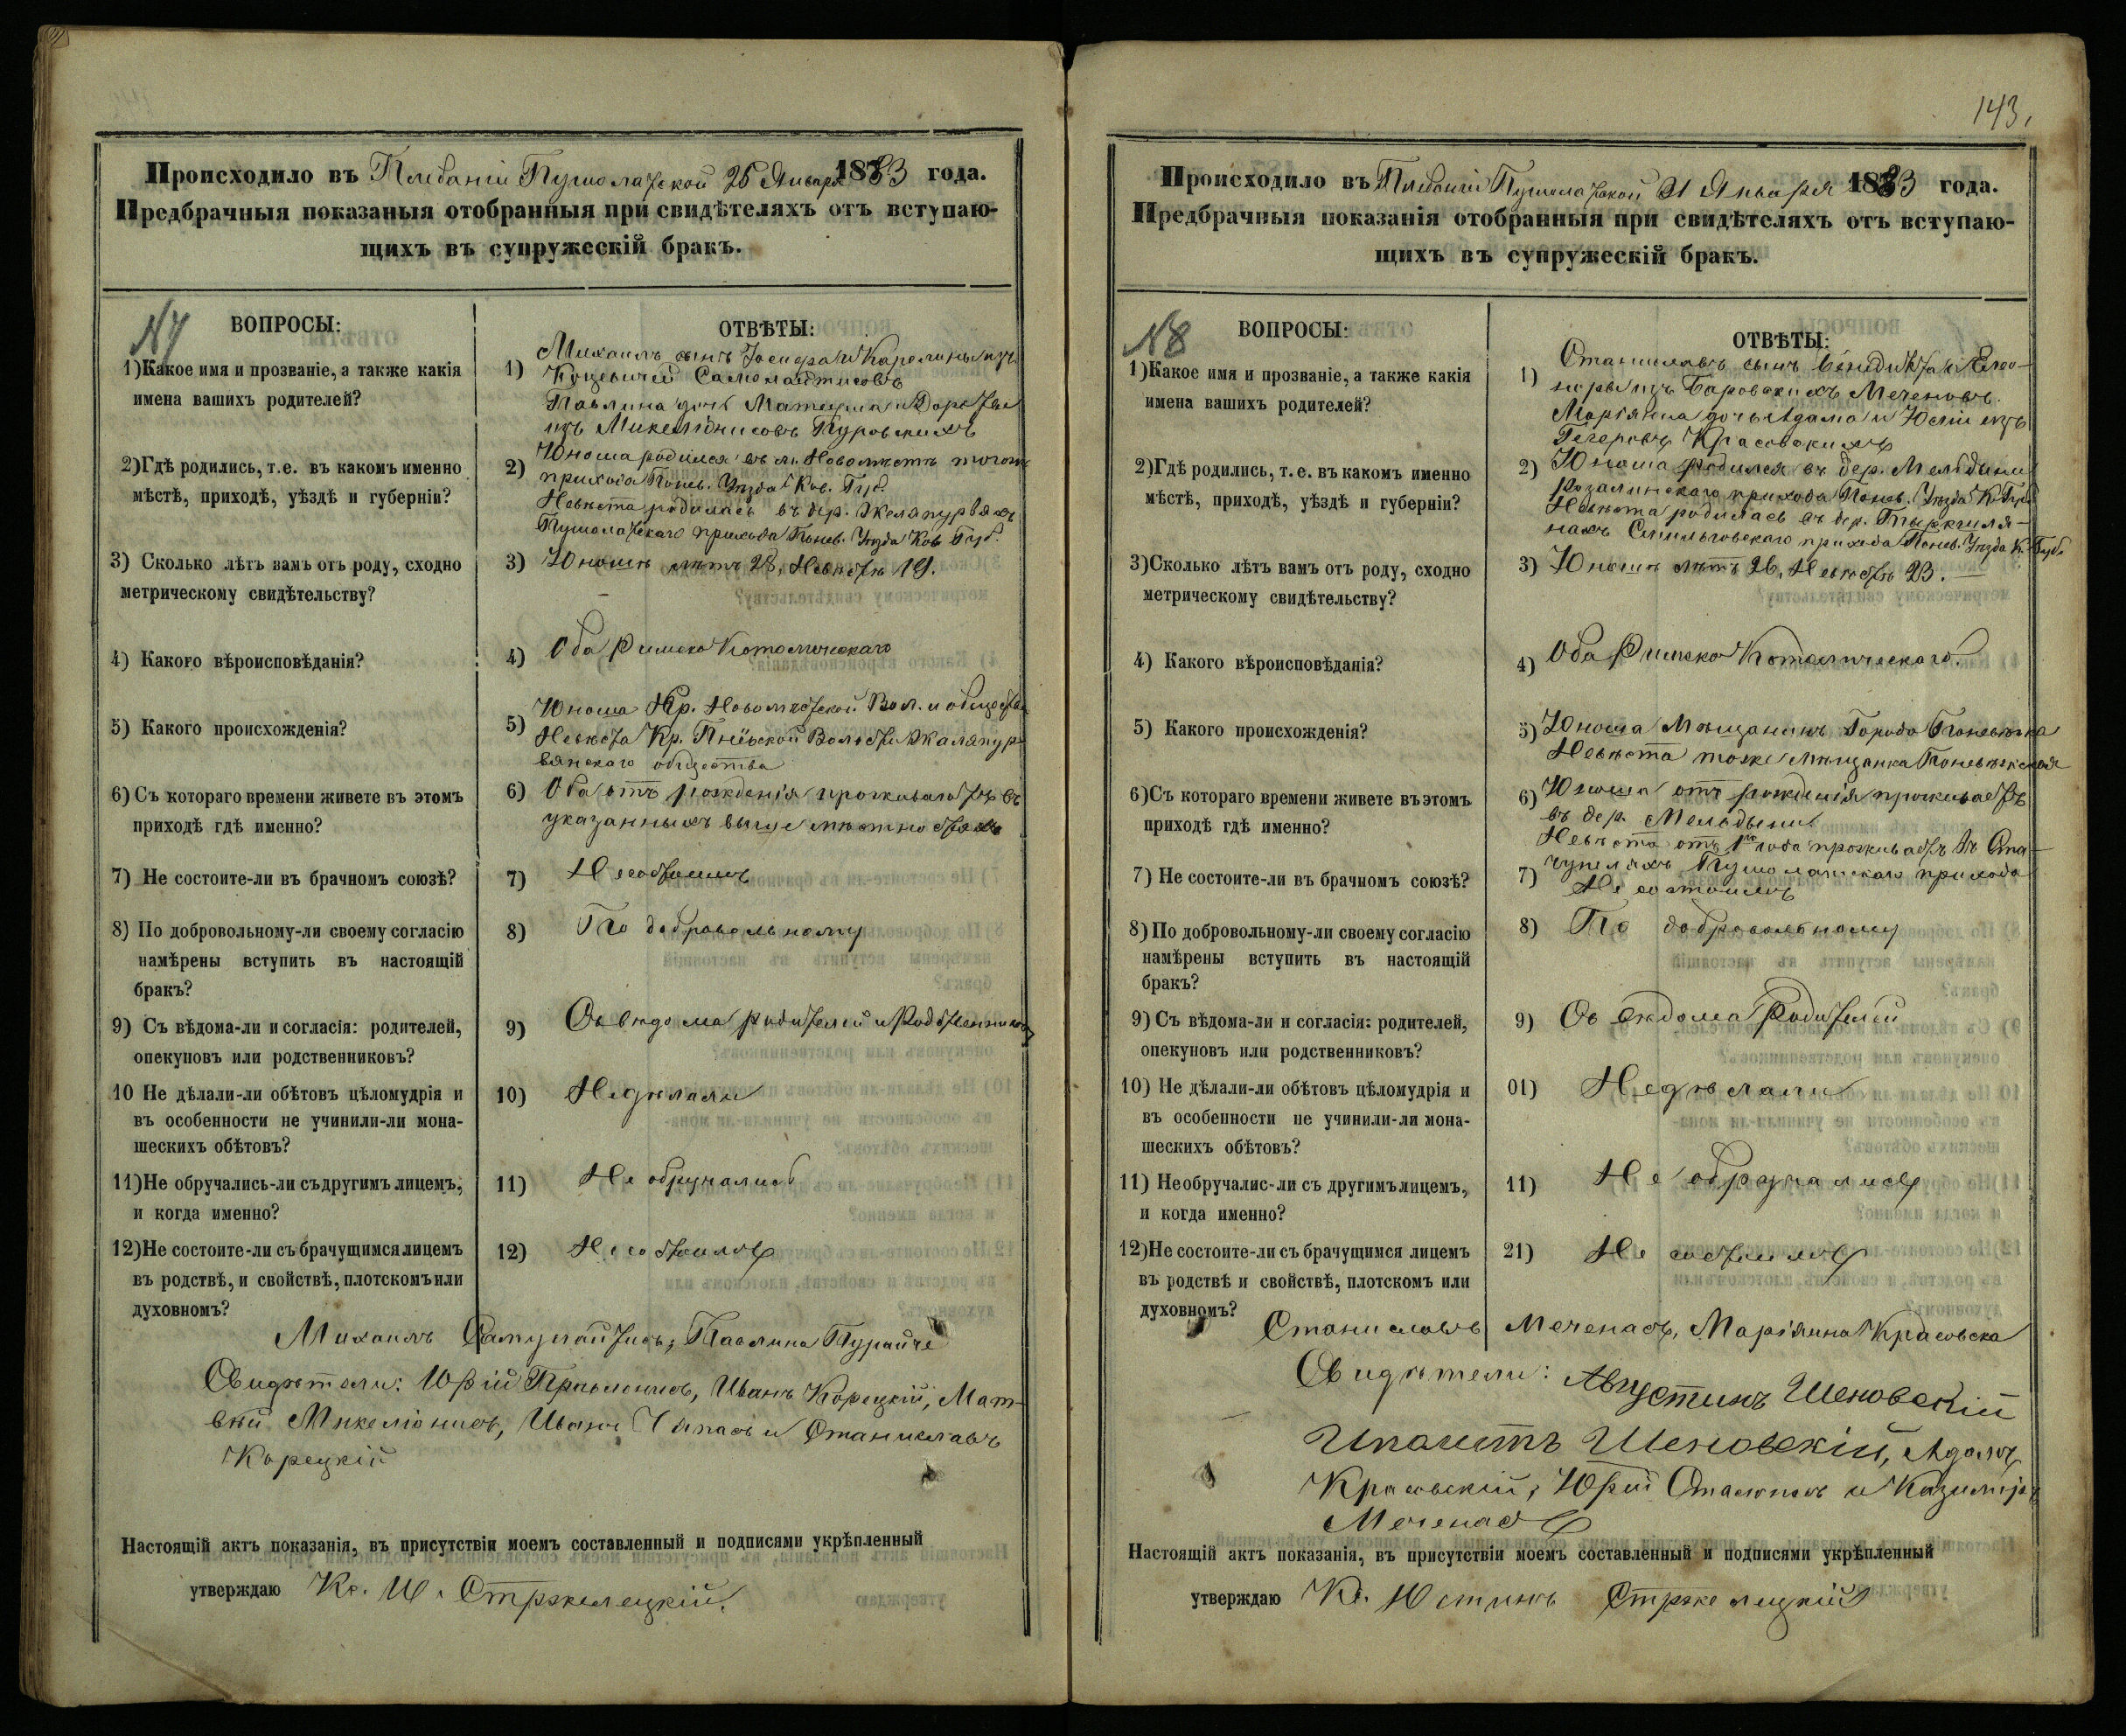 Происходило въ Плебаніи Пушолатской 26 Января 1883 года.
Предбрачныя показаныя отобранныя при свидѣтеляхъ отъ вступаю-
щихъ въ супружескій бракъ.
ВОПРОСЫ:
1)Какое имя и прозваніе, а также какія
имена вашихъ родителей?
2)Гдѣ родились, т.е. въ какомъ именно
мѣстѣ, приходѣ, уѣздѣ и губерніи?
3) Сколько лѣтъ вамъ отъ роду, сходно
метрическому свидѣтельству?
4) Какого вѣроисповѣданія?
5) Какого происхожденія?
6) Съ котораго времени живете въ этомъ
приходѣ гдѣ именно?
7) Не состоите-ли въ брачномъ союзѣ?
8) По добровольному-ли своему согласію
намѣрены вступить въ настоящій
бракъ?
9) Съ вѣдома-ли и согласія: родителей,
опекуновъ или родственниковъ?
10 Не дѣлали-ли обѣтовъ цѣломудрія и
въ особенности не учинили-ли мона-
шескихъ обѣтовъ?
11)Не обручались-ли съ другимъ лицемъ,
и когда именно?
12)Не состоите-ли съ брачущимся лицемъ
въ родствѣ, и свойствѣ, плотскомъ или
духовномъ?
ОТВѢТЫ:
1) Михаилъ сынъ Іосифа и Каролины изъ
Павлина дочь Матеуша и Доротеи
2) Юноша родился въ м. Новомѣстѣ тогожъ
прихода Понев. Уѣзда Ков. Губ.
Невѣста родилась въ дер.
Пушолатскаго прихода Понев. Уѣзда Ков Губ.
3) Юношѣ лѣтъ 28, Невѣстѣ 19.
4) Оба Римско Католическаго
5) Юноша Кр. Новомѣстской Вол. и общества
Невѣста Кр. Волости
вянскаго общества
6) Оба отъ рожденія проживаютъ въ
указанныхъ выше мѣстностяхъ
7) Несостоимъ
8) По добровольному
9) Съ вѣдома родителей и Родственниковъ
10) Недѣлали
11) Не обручались
12) Не состоимъ
Михаилъ Павлина
Свидѣтели: Юрій Иванъ Корецкій, Мат-
вѣй Микеліонисъ, Иванъ и Станиславъ
Корецкій
Настоящій актъ показанія, въ присутствіи моемъ составленный и подписями укрѣпленный
утверждаю Кс. Ю. Стржелецкій.
143.
Происходило въ Плебаніи Пушолатской 31 Января 1883 года.
Предбрачныя показанія отобранныя при свидѣтеляхъ отъ вступаю-
щихъ въ супружескій бракъ.
N8
ВОПРОСЫ:
1)Какое имя и прозваніе, а также какія
имена вашихъ родителей?
2)Гдѣ родились, т. е. въ какомъ именно
мѣстѣ, приходѣ, уѣздѣ и губерніи?
3)Сколько лѣтъ вамъ отъ роду, сходно
метрическому свидѣтельству?
4) Какого вѣроисповѣданія?
5) Какого происхожденія?
6)Съ котораго времени живете въ этомъ
приходѣ гдѣ именно?
7) Не состоите-ли въ брачномъ союзѣ?
8) По добровольному-ли своему согласію
намѣрены вступить въ настоящій
бракъ?
9) Съ вѣдома-ли и согласія: родителей,
опекуновъ или родственниковъ?
10) Не дѣлали-ли обѣтовъ цѣломудрія и
въ особенности не учинили-ли мона-
шескихъ обѣтовъ?
11) Не обручалис-ли съ другимъ лицемъ,
и когда именно?
12)Не состоите-ли съ брачущимся лицемъ
въ родствѣ и свойствѣ, плотскомъ или
духовномъ?
ОТВѢТЫ:
1) Станиславъ сынъ Бенедикта и Элео-
норы изъ Боровскихъ Меченовъ.
Маріянна дочь Адама и изъ
Красовскихъ
2) Юноша родился въ дер. Мельдыни
Розалинскаго прихода Понев. Уѣзда К. Губ
Невѣста родилась въ дер.
нахъ Смильговскаго прихода Понев. Уѣзда К. Губ.
3) Юношѣ лѣтъ 26, Невѣстѣ 23.
4) Оба Римско Католическаго.
5) Юноша Мѣщанинъ Города Поневѣжа
Невѣста тоже мѣщанка Поневѣжская
6) Юноша отъ рожденія проживаетъ
въ дер. Мельдыни
Невѣста отъ 1 года проживаетъ въ
Пушолатскаго прихода
7) Не состоимъ
8) По добровольному
9) Съ вѣдома Родителей
01) Недѣлали
11) Не обручались
21) Не состоимъ
Станиславъ Меченасъ, Маріянна Красовска
Свидѣтели: Августинъ Шеновскій
Ипалитъ Шеновскій, Адамъ
Красовскій, Юрій и Казимиръ
Меченасъ
Настоящій актъ показанія, въ присутствіи моемъ составленный и подписями укрѣпленный
утверждаю Кс. Юстинъ Стржелецкій